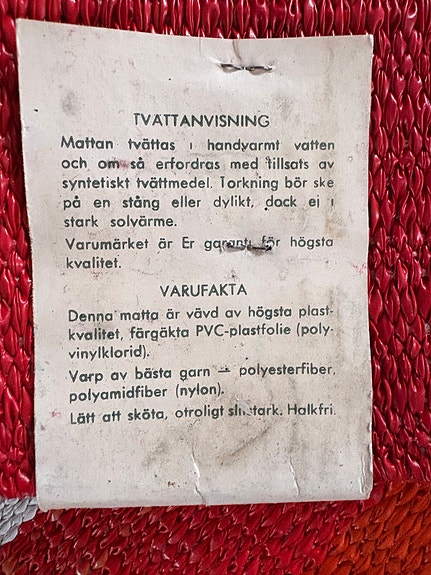 TVÄTTANVISNING
Mattan tvättas i handvarmt vatten
och om så erfordras med tillsats av
syntetiskt tvättmedel. Torkning bör ske
på en stång eller dylikt, dock ej i
stark solvärme.
Varumärket är Er garanti för högsta
kvalitet.
VARUFAKTA
Denna matta är vävd av högsta plast-
kvalitet, färgäkta PVC-plastfolie (poly-
vinylklorid).
Varp av bästa garn — polyesterfiber,
polyamidfiber (nylon).
Lätt att sköta, otroligt slitstark. Halkfri.